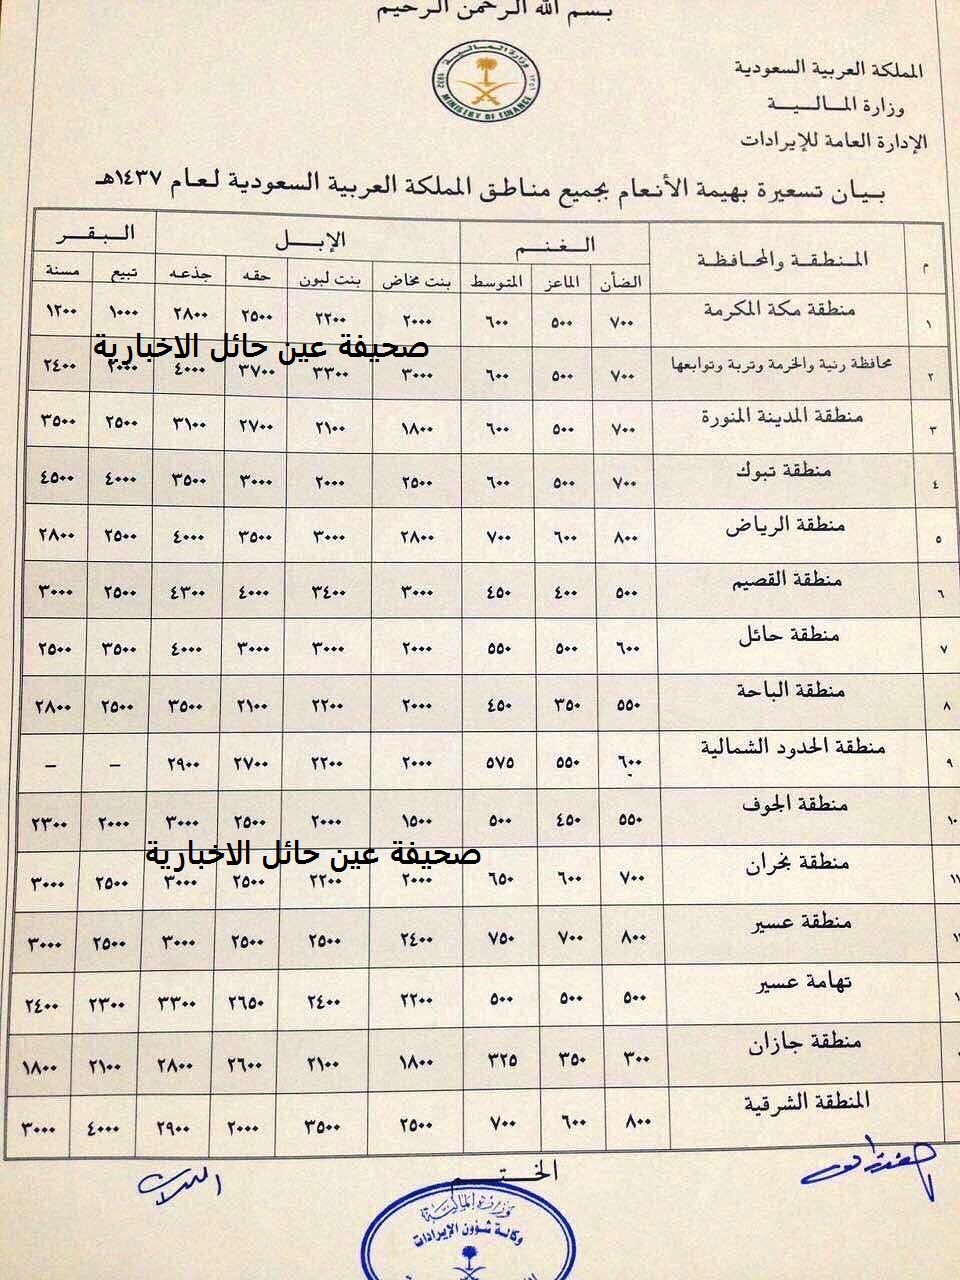 بسم الله الرحمن الرحيم
المملكة العربية السعودية
وزارة المـالـيـــة
الإدارة العامة للإيرادات
وزارة المـالـيـة
MINISTRY OF FINANCE
1932
بـيـان تسعيرة بهيمة الأنعام بجميع مناطق المملكة العربية السعودية لـعام ١٤٣٧هـ
م المـنـطـقـة والمحـافـظـة الـغـنـم الإبـل الـبـقـر
الضأن الماعز المتوسط بنت مخاض بنت لبون حقه جذعه تبيع مسنة
١ منطقة مكة المكرمة ٧٠٠ ٥٠٠ ٦٠٠ ٢٠٠٠ ٢٢٠٠ ٢٥٠٠ ٢٨٠٠ ١٠٠٠ ١٢٠٠
صحيفة عين حائل الاخبارية
٢ محافظة رنية والخرمة وتربة وتوابعها ٧٠٠ ٥٠٠ ٦٠٠ ٣٠٠٠ ٣٣٠٠ ٣٧٠٠ ٤٠٠٠ ٢٠٠٠ ٢٤٠٠
٣ منطقة المدينة المنورة ٧٠٠ ٥٠٠ ٦٠٠ ١٨٠٠ ٢١٠٠ ٢٧٠٠ ٣١٠٠ ٢٥٠٠ ٣٥٠٠
٤ منطقة تبوك ٧٠٠ ٥٠٠ ٦٠٠ ٢٥٠٠ ٢٠٠٠ ٣٠٠٠ ٣٥٠٠ ٤٠٠٠ ٤٥٠٠
٥ منطقة الرياض ٨٠٠ ٦٠٠ ٧٠٠ ٢٨٠٠ ٣٠٠٠ ٣٥٠٠ ٤٠٠٠ ٢٥٠٠ ٢٨٠٠
٦ منطقة القصيم ٥٠٠ ٤٠٠ ٤٥٠ ٣٠٠٠ ٣٤٠٠ ٤٠٠٠ ٤٣٠٠ ٢٥٠٠ ٣٠٠٠
٧ منطقة حائل ٦٠٠ ٥٠٠ ٥٥٠ ٢٠٠٠ ٣٠٠٠ ٣٠٠٠ ٤٠٠٠ ٣٥٠٠ ٢٥٠٠
٨ منطقة الباحة ٥٥٠ ٣٥٠ ٤٥٠ ٢٠٠٠ ٢٢٠٠ ٢١٠٠ ٣٥٠٠ ٢٥٠٠ ٢٨٠٠
٩ منطقة الحدود الشمالية ٦٠٠ ٥٥٠ ٥٧٥ ٢٠٠٠ ٢٢٠٠ ٢٧٠٠ ٢٩٠٠ – –
١٠ منطقة الجوف ٥٥٠ ٤٥٠ ٥٠٠ ١٥٠٠ ٢٠٠٠ ٢٥٠٠ ٣٠٠٠ ٢٠٠٠ ٢٣٠٠
صحيفة عين حائل الاخبارية
١١ منطقة نجران ٧٠٠ ٦٠٠ ٦٥٠ ٢٠٠٠ ٢٢٠٠ ٢٥٠٠ ٣٠٠٠ ٢٥٠٠ ٣٠٠٠
منطقة عسير ٨٠٠ ٧٠٠ ٧٥٠ ٢٤٠٠ ٢٥٠٠ ٢٥٠٠ ٣٠٠٠ ٢٥٠٠ ٣٠٠٠
تهامة عسير ٥٠٠ ٥٠٠ ٥٠٠ ٢٢٠٠ ٢٤٠٠ ٢٦٥٠ ٣٣٠٠ ٢٣٠٠ ٢٤٠٠
منطقة جازان ٣٠٠ ٣٥٠ ٣٢٥ ١٨٠٠ ٢١٠٠ ٢٦٠٠ ٢٨٠٠ ٢١٠٠ ١٨٠٠
المنطقة الشرقية ٨٠٠ ٦٠٠ ٧٠٠ ٢٥٠٠ ٣٥٠٠ ٢٠٠٠ ٢٩٠٠ ٤٠٠٠ ٣٠٠٠
الختـــم
وزارة المالية
وكالة شؤون الإيرادات